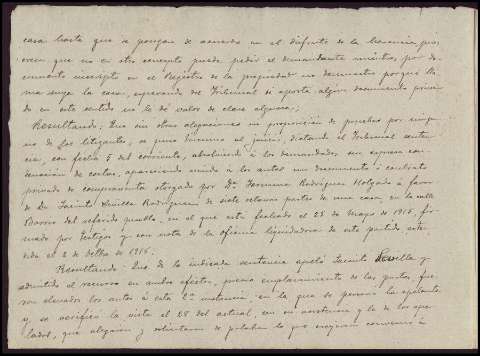 casa hasta que se pongan de acuerdo en el disfrute de la herencia, pues
creen que no en otro concepto puede pedir el demandante mientras por do-
cumento inscripto en el Registro de la propiedad no demuestre porqué lla-
ma suya la casa, esperando del Tribunal si aporta algún documento priva-
do en este sentido no le dé valor de clase alguna;
Resultando: Que sin otras alegaciones ni proposición de pruebas por ningu-
no de los litigantes, se puso término al juicio, dictando el Tribunal senten-
cia, con fecha 5 del corriente, absolviendo á los demandados sin expresa con-
denación de costas, apareciendo unido á los autos un documento ó contrato
privado de compraventa otorgado por Dª Rodriguez Holgado á favor
de D. Jacinto Sevilla Rodriguez de siete octavas partes de una casa, en la calle
Barrio del referido pueblo, en el que está fechado el 25 de Mayo de 1915, fir-
mado por testigos y con nota de la oficina liquidadora de este partido exten-
dida en 2 de 1915.
Resultando: Que de la indicada sentencia apeló Jacinto Sevilla y
admitido el recurso en ambos efectos, previo emplazamiento de las partes fue-
ron elevados los autos á esta 2ª instancia, en la que se personó la apelante
y se verificó la vista el 28 del actual, con su asistencia y la de los ape-
lados, que alegaron y solicitaron de palabra lo que creyeron convenir á